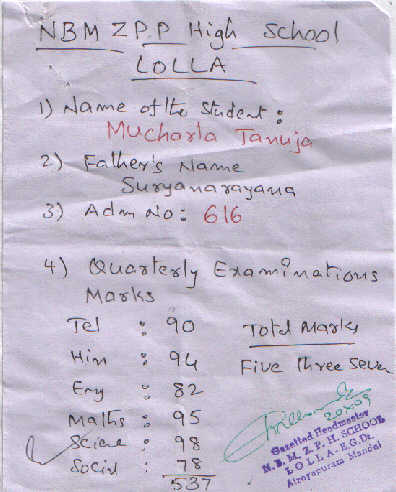 NBM Z.P.P High School
LOLLA
1) Name of the Student :
Mucharla Tanuja
2) Father's Name
Suryanarayana
3) Adm No : 616
4) Quarterly Examinations
Marks
Tel : 90
Total Marks
Hin : 94
Five Three Seven
Eng : 82
Maths : 95
Sciene : 98
Social : 78
537
Gazetted Headmaster
N.B.M. Z.P.H. SCHOOL
LOLLA - E.G.Dt.
Atreyapuram Mandal